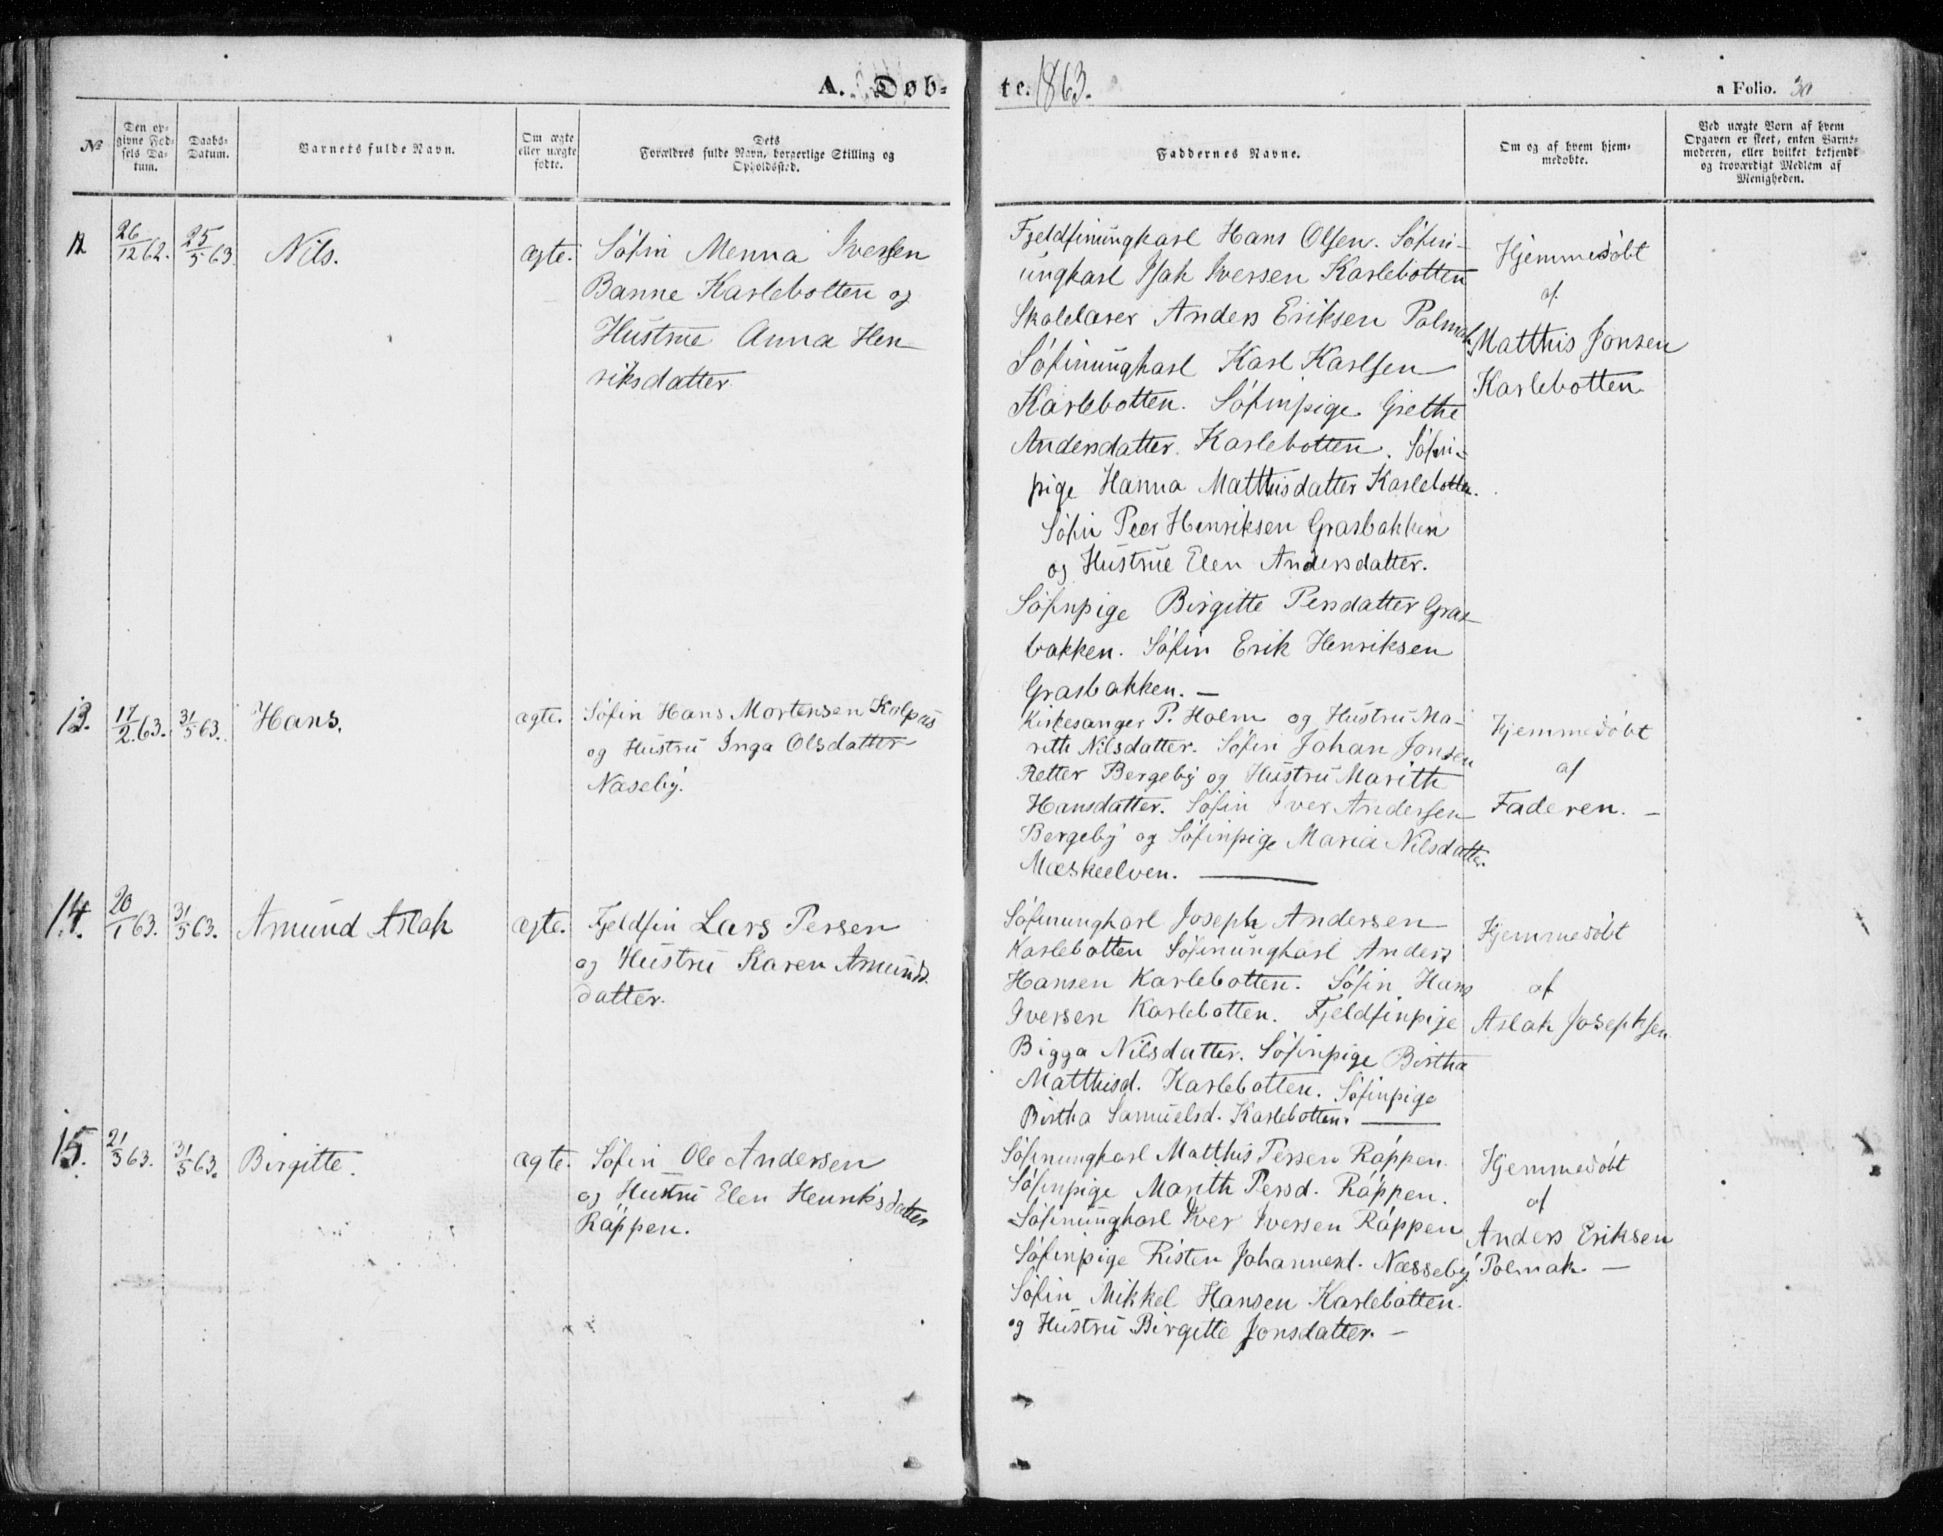 A. Døb-
te. 1863.
a Folio. 30
№
Den opgivne Fødsels Datum.
Daabs-Datum.
Barnets fulde Navn.
Om ægte eller uægte fødte.
Dets Forældres fulde Navn, borgerlige Stilling og Opholdssted.
Faddernes Navne.
Om og af hvem hjemmedøbte.
Ved uægte Born af hvem Opgaven er skeet, enten Barnemoderen, eller hvilket bekjendt og troværdigt Medlem af Menigheden.
12
26/12 62.
25/5 63.
Nils.
ægte.
Söfin Menna Iversen
Banne Karlebotten og
Hustrue Anna Hen-
riksdatter
Fjeldfinungkarl Hans Olsen. Söfin-
ungkarl Isak Iversen Karlebotten
Skolelærer Anders Eriksen Polmak
Söfinungkarl Karl Karlsen
Karlebotten. Söfinpige Grethe
Andersdatter Karlebotten. Söfin-
pige Hanna Matthisdatter Karlebotten.
Söfin Peer Henriksen Græsbakken
og Hustrue Elen Andersdatter.
Söfinpige Birgitte Persdatter Græs-
bakken. Söfin Erik Henriksen
Græsbakken. —
Hjemmedöbt
af
Matthis Jonsen
Karlebotten
13.
17/2 63.
31/5 63.
Hans.
ægte.
Söfin Hans Mortensen Kalpus
og Hustru Inga Olsdatter
Næseby.
Kirkesanger P. Holm og Hustru Ma-
rith Nilsdatter. Söfin Johan Jonsen
Retter Bergeby og Hustru Marith
Hansdatter. Söfin Iver Andersen
Bergeby og Söfinpige Maria Nilsdatter
Mæskeelven. —
Hjemmedöbt
af
Faderen. —
14.
20/1 63.
31/5 63.
Amund Aslak
ægte.
Fjeldfin Lars Persen
og Hustru Karen Amunds
datter.
Söfinungkarl Joseph Andersen
Karlebotten Söfinungkarl Anders
Hansen Karlebotten. Söfin Hans
Iversen Karlebotten. Fjeldfinpige
Bigga Nilsdatter. Söfinpige Birtha
Matthisd. Karlebotten. Söfinpige
Birtha Samuelsd. Karlebotten. —
Hjemmedöbt
af
Aslak Josephsen
15.
21/3 63.
31/5 63.
Birgitte.
ægte.
Söfin Ole Andersen
og Hustru Elen Henriksdatter
Räppen.
Söfinungkarl Matthis Persen Räppen.
Söfinpige Marith Persd. Räppen.
Söfinungkarl Iver Iversen Räppen
Söfinpige Risten Johannesd. Næsseby
Söfin Mikkel Hansen Karlebotten.
og Hustru Birgitte Jonsdatter. —
Hjemmedöbt
af
Anders Eriksen
Polmak. —